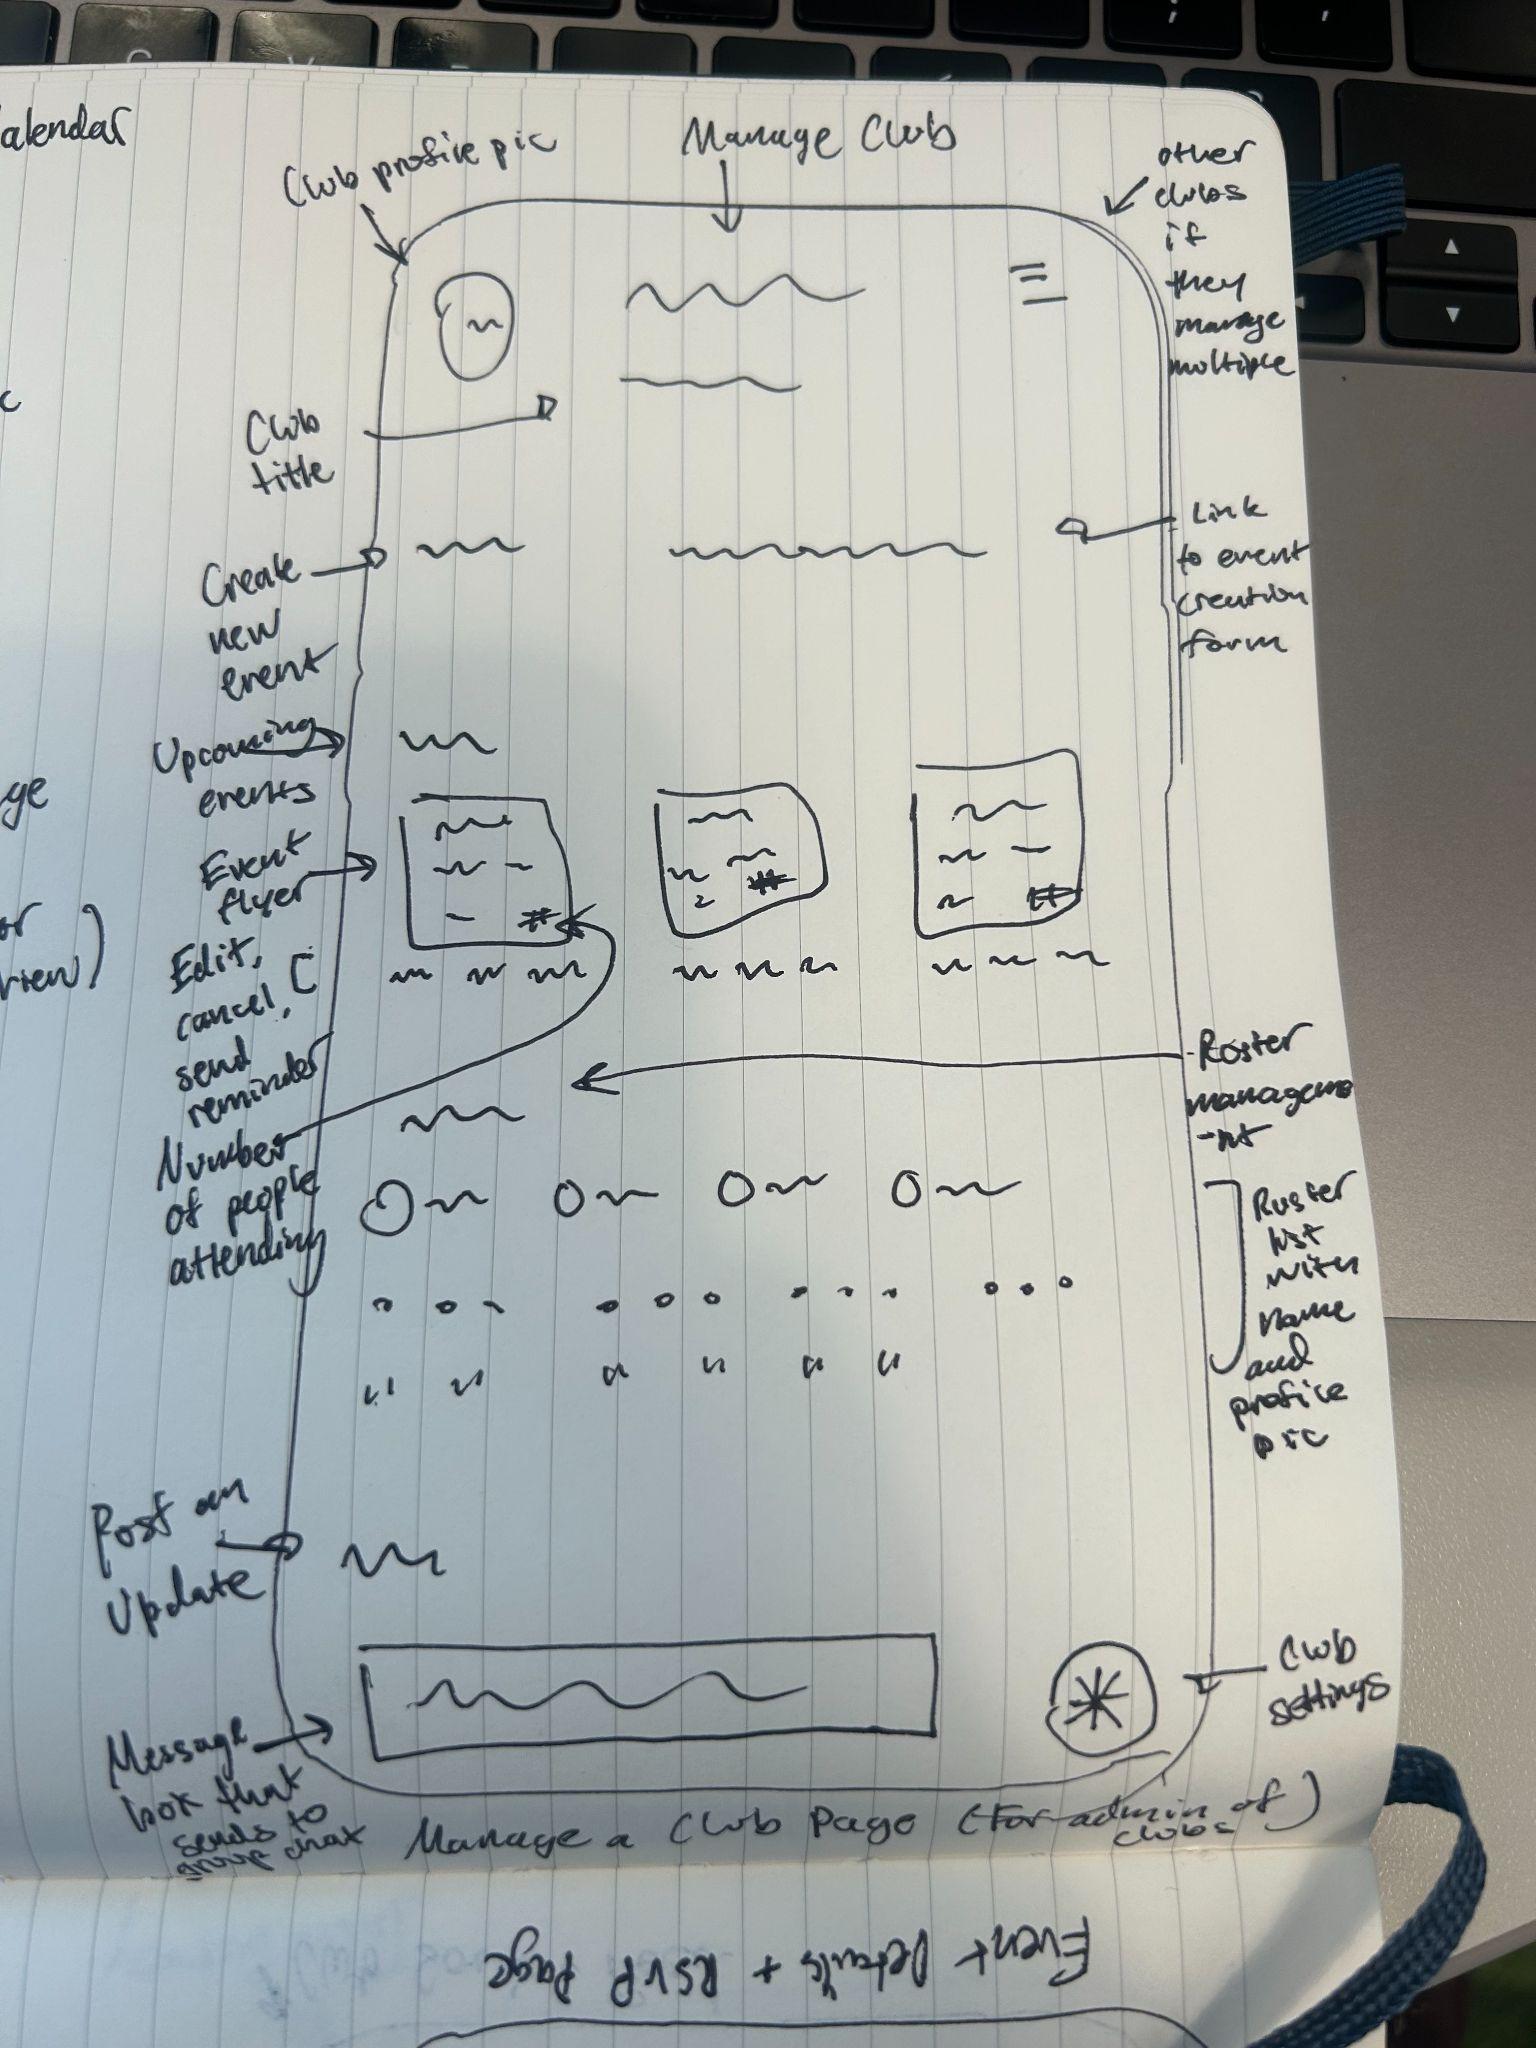 alendar
c
ge
or
view)
Club profile pic
Manage Club
other
clubs
if
they
manage
multiple
Club
title
Create
new
event
Link
to event
creation
form
Upcoming
events
Event
flyer
Edit,
cancel,
send
reminder
Number
of people
attending
#
#
#
Roster
manageme
-nt
Roster
list
with
name
and
profile
pic
Post an
Update
Message
box that
sends to
group chat
Club
settings
Manage a Club Page (For admin of
clubs)
Event Details + RSVP Page